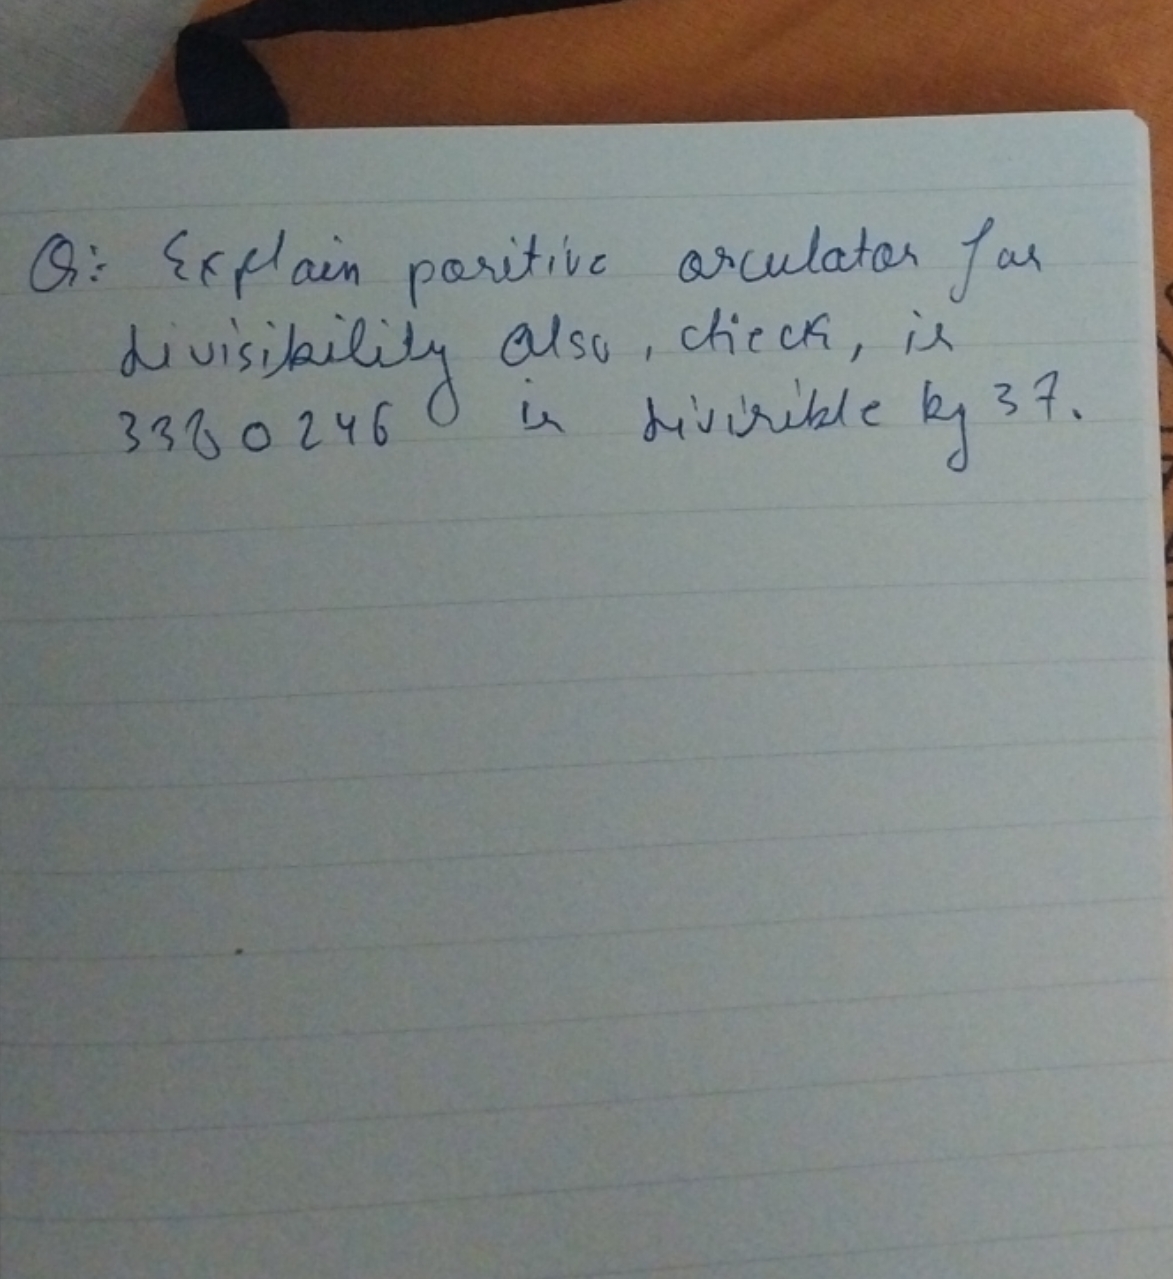 Q: Explain positive osculator for
divisibility also, check, is
3380246 is divisible by 37.